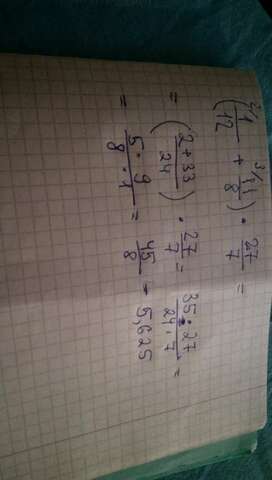 (²⁄1/12 + ³⁄11/8) · 27/7 =
= (2 + 33/24) · 27/7 = 35 · 27/24 · 7 =
= 5 · 9/8 · 1 = 45/8 = 5,625